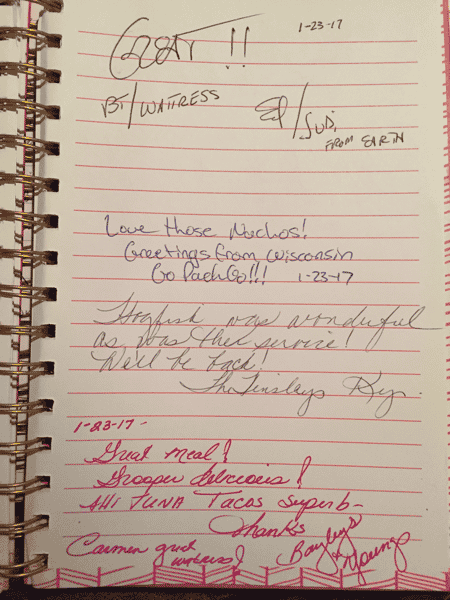 GREAT !! 1-23-17
BT/WAITRESS Ed/SUDi
FROM EARTH
Love those Nachos!
Greetings from Wisconsin
Go Pack Go!!! 1-23-17
Hogfish was wonderful
as was the service!
We'll be back!
The Tinsleys
1-23-17 -
Great meal!
Grouper delicious!
AHI TUNA Tacos superb-
Thanks
Carmen great
waitress! Bayleys
& Youngs